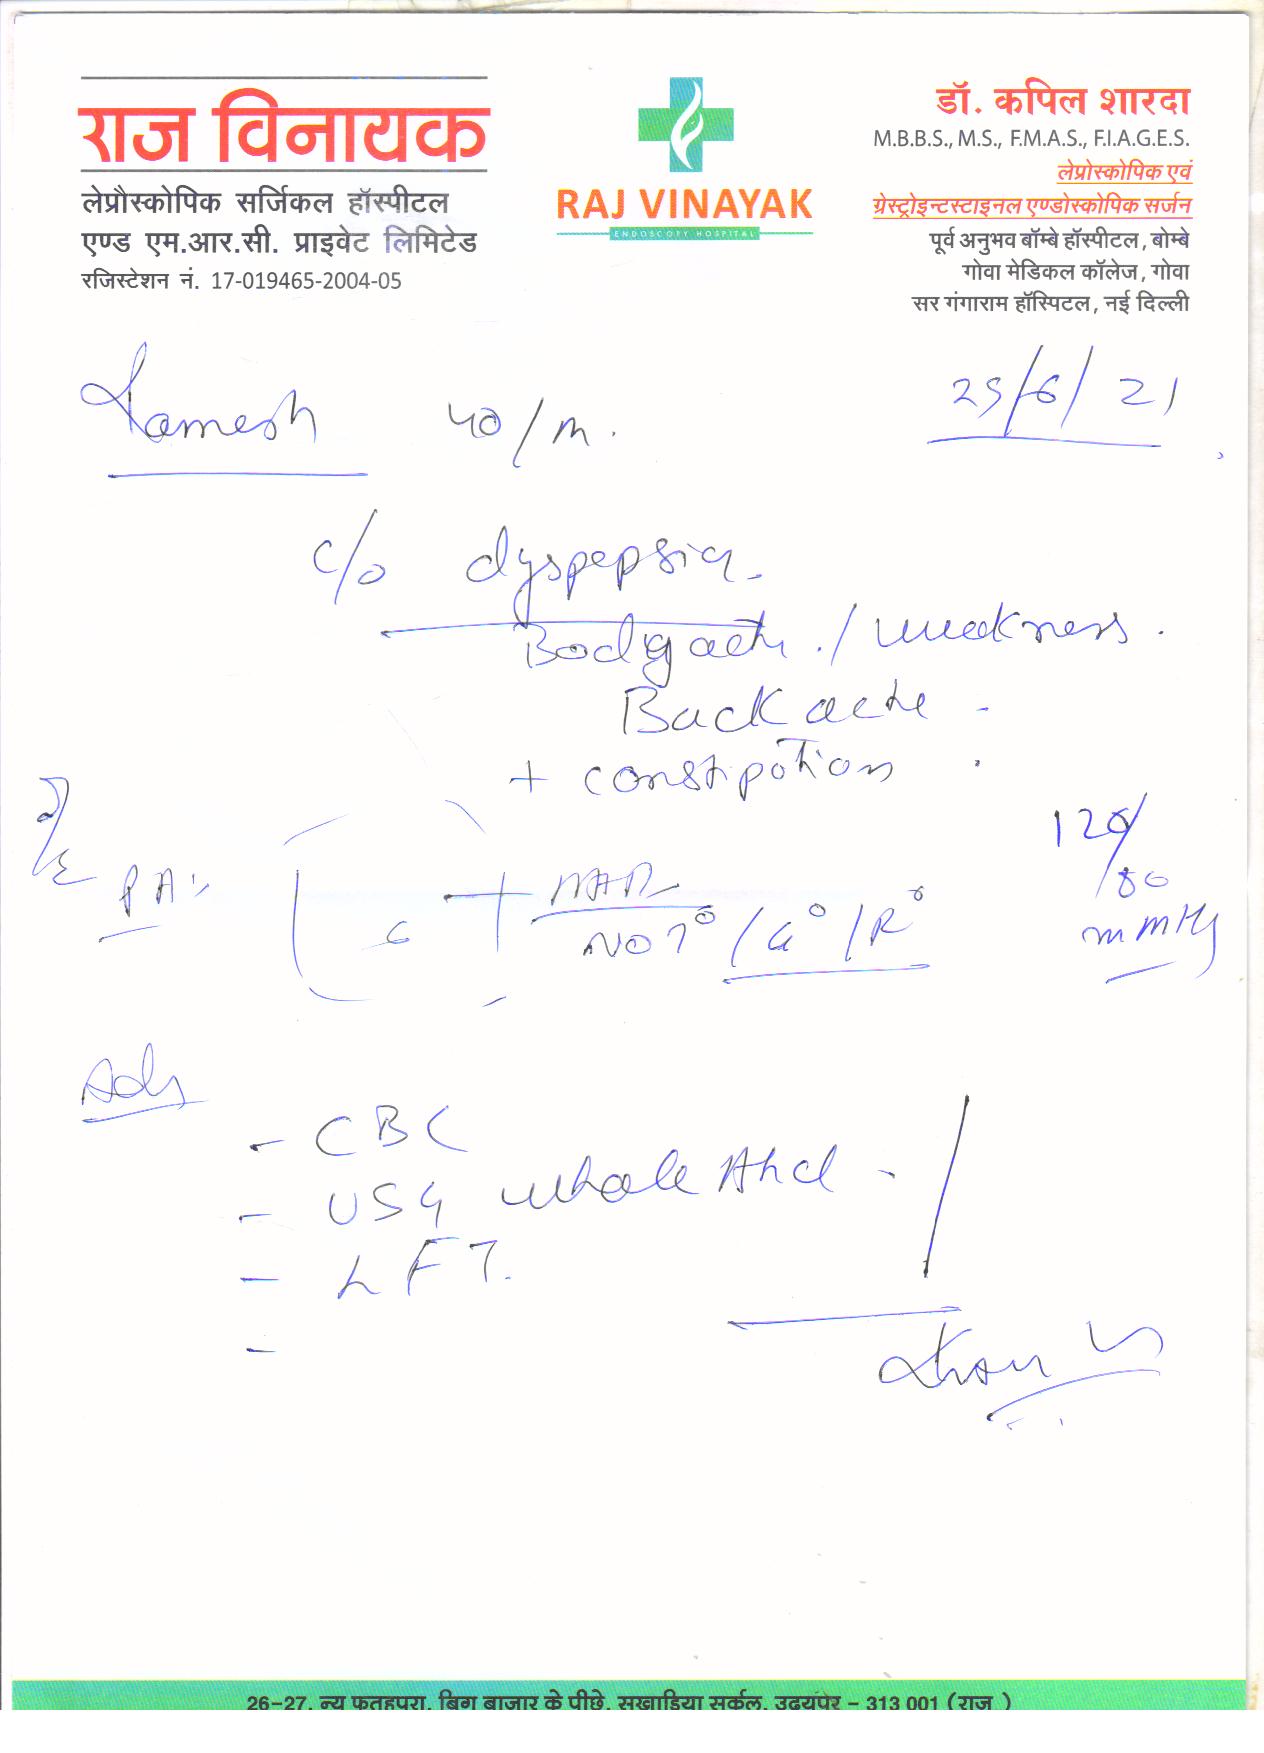 राज विनायक
लेप्रौस्कोपिक सर्जिकल हॉस्पीटल
एण्ड एम.आर.सी. प्राइवेट लिमिटेड
रजिस्टेशन नं. 17-019465-2004-05
RAJ VINAYAK
ENDOSCOPY HOSPITAL
डॉ. कपिल शारदा
M.B.B.S., M.S., F.M.A.S., F.I.A.G.E.S.
लेप्रोस्कोपिक एवं
ग्रेस्ट्रोइन्टस्टाइनल एण्डोस्कोपिक सर्जन
पूर्व अनुभव बॉम्बे हॉस्पीटल, बोम्बे
गोवा मेडिकल कॉलेज, गोवा
सर गंगाराम हॉस्पिटल, नई दिल्ली
40/m.
25/6/21
c/o dyspepsia
Bodyache / weakness.
Backache
+ constipation
120/80
mmHg
PA:
NO T°/G°/R°
Adv
- CBC
- USG whole Abd
- LFT.
-
26-27, न्यू फतहपुरा, बिग बाजार के पीछे, सुखाडिया सर्कल, उदयपुर - 313 001 (राज.)